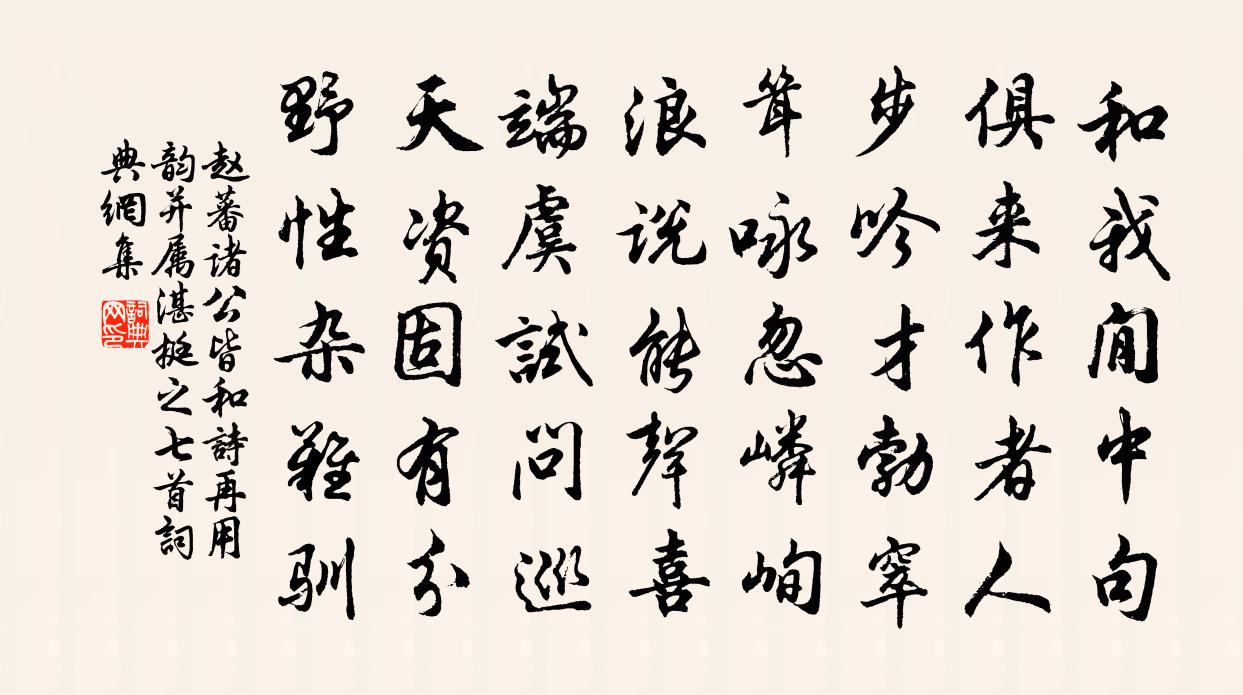 和我閒中句
俱来作者人
步吟才勃窣
耸咏忽嶙峋
浪说能聲喜
端虞試问巡
天资固有分
野性杂難驯
赵蕃诸公皆和詩再用
韵并属湛挺之七首詞
典網集
詞典网印